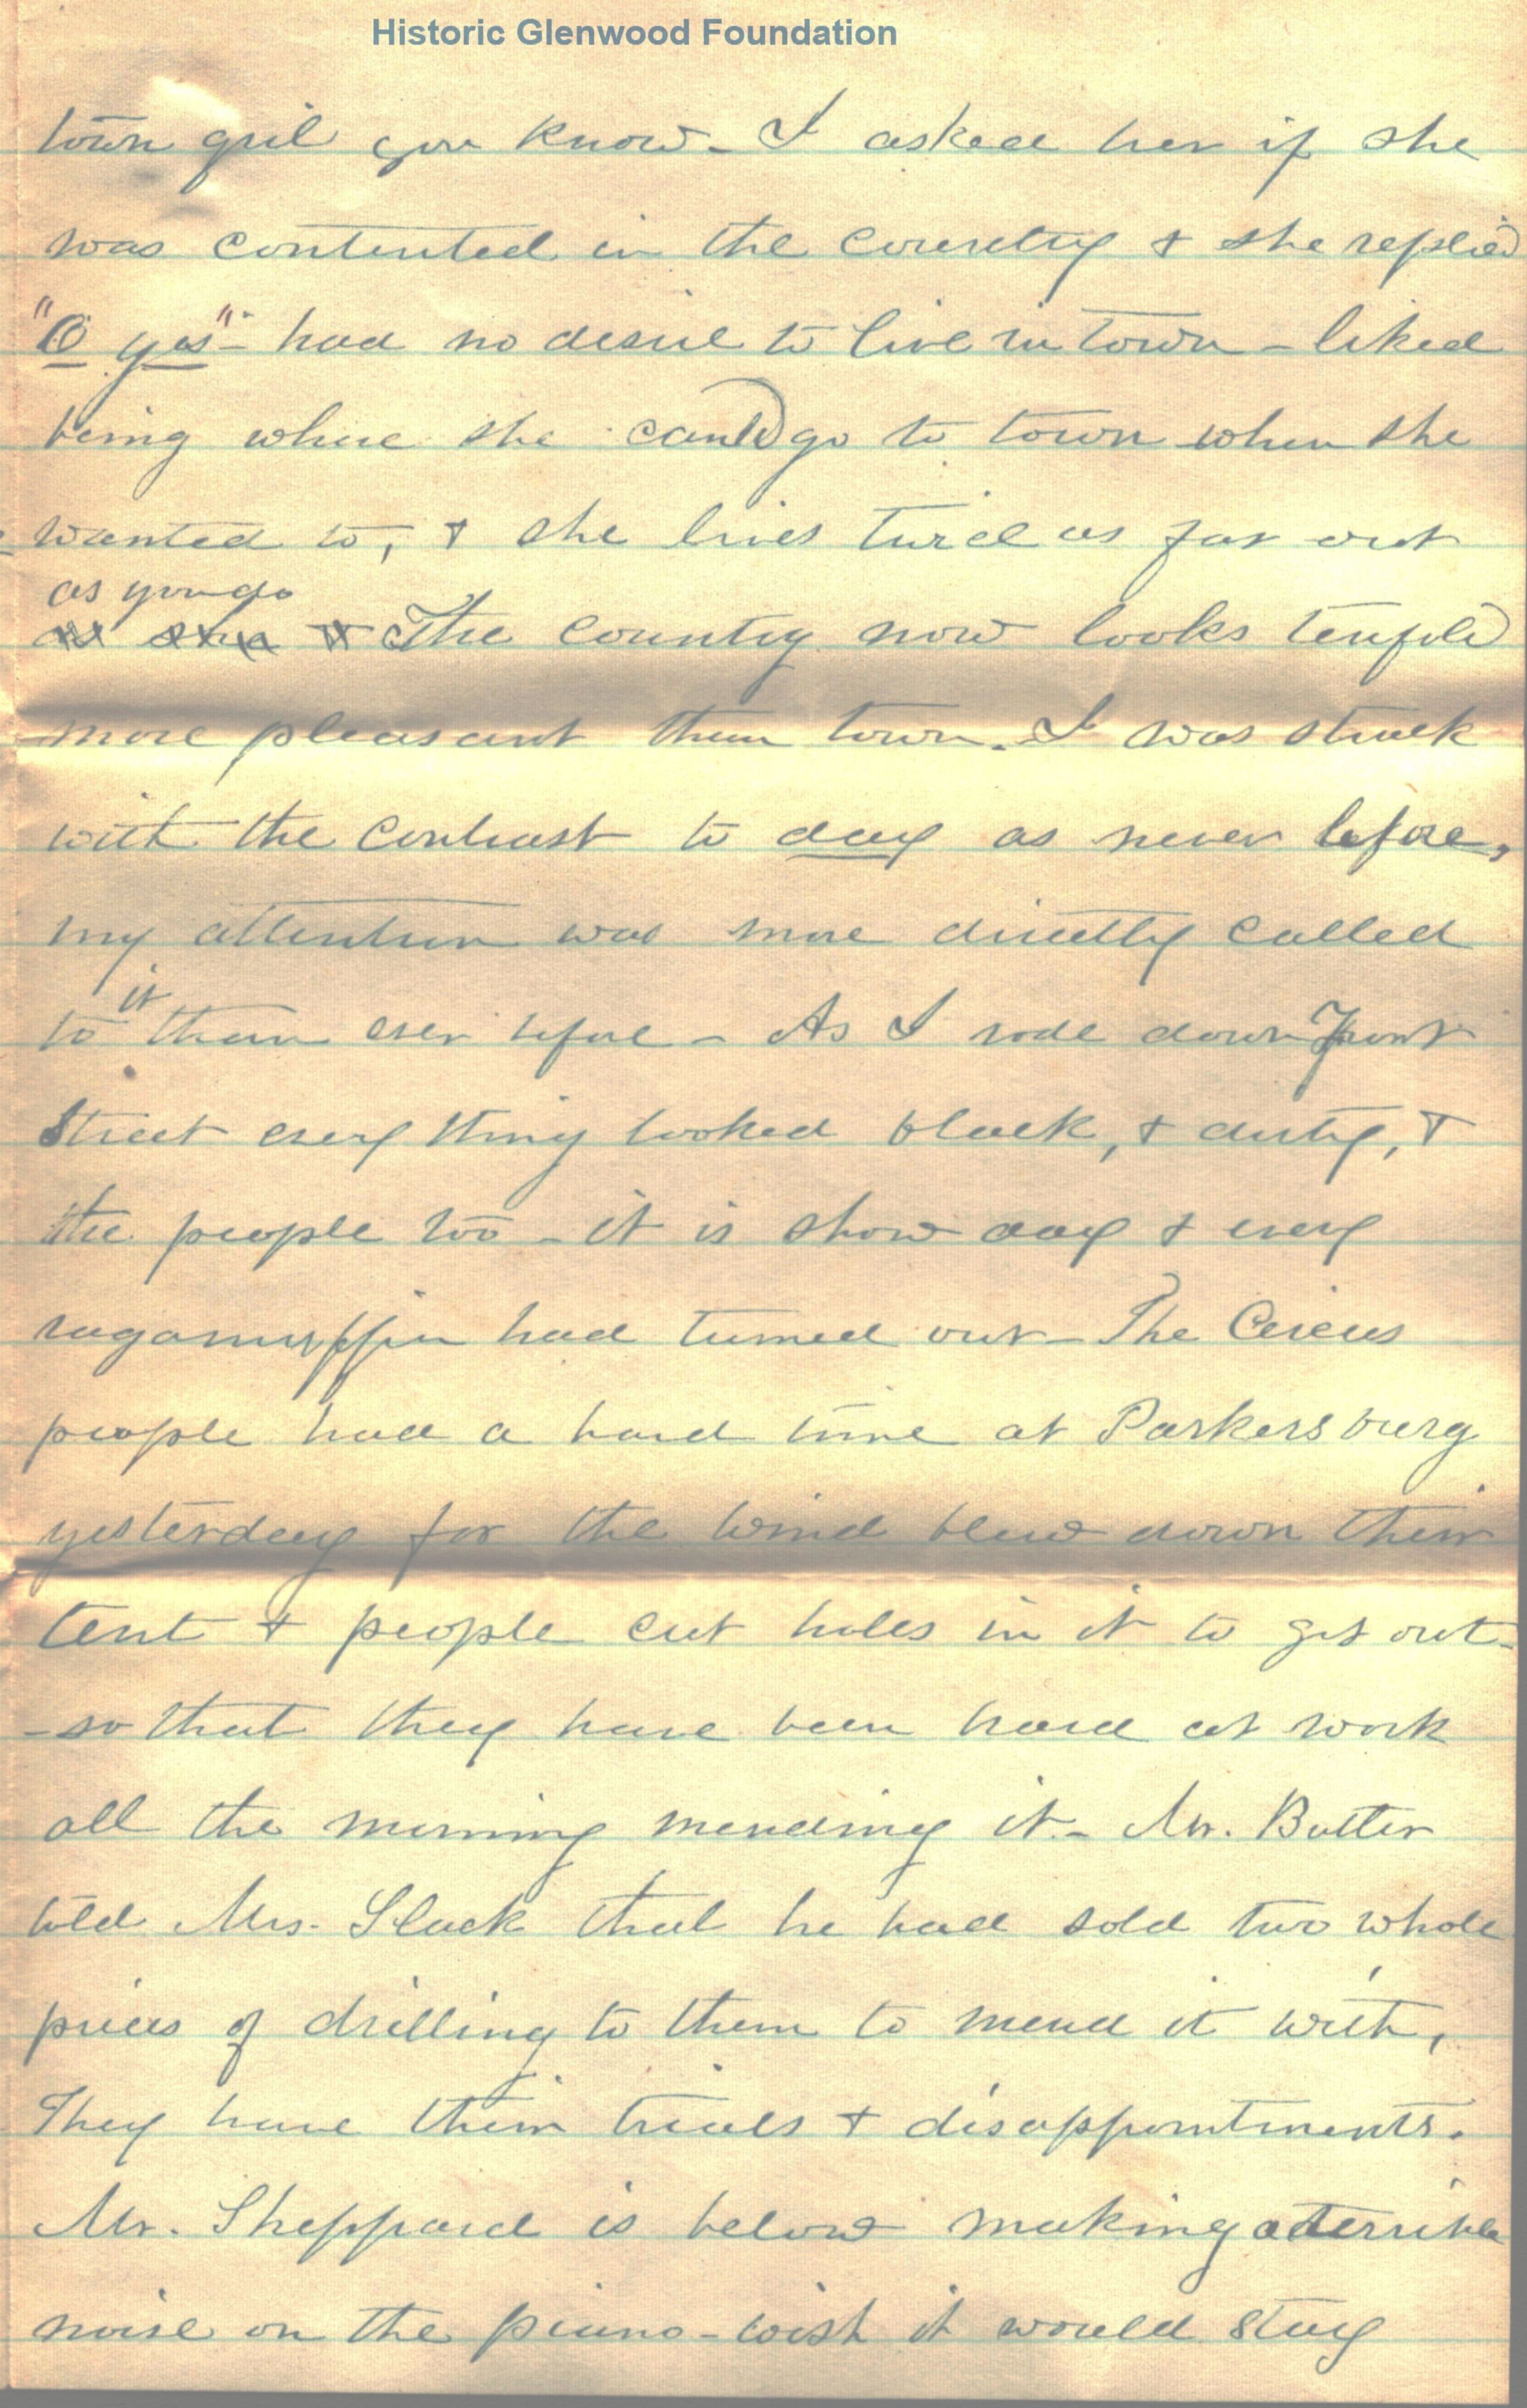 Historic Glenwood Foundation
town girl you know - I asked her if she
was contented in the country & she replied
"O yes" - had no desire to live in town - liked
being where she could go to town when she
wanted to, & she lives twice as far out
as you do
as she & The country now looks tenfold
more pleasant than town. I was struck
with the contrast to day as never before,
my attention was more directly called
it
to than ever before - As I rode down Front
Street every thing looked black, & dirty, &
the people too - it is show day & every
ragamuffin had turned out - The Circus
people had a hard time at Parkersburg
yesterday for the wind blew down their
tent & people cut holes in it to get out -
- so that they have been hard at work
all the morning mending it - Mr. Butter
told Mrs. Slack that he had sold two whole
pieces of drilling to them to mend it with,
They have their trials & disappointments.
Mr. Sheppard is below making a terrible
noise on the piano - wish it would stay